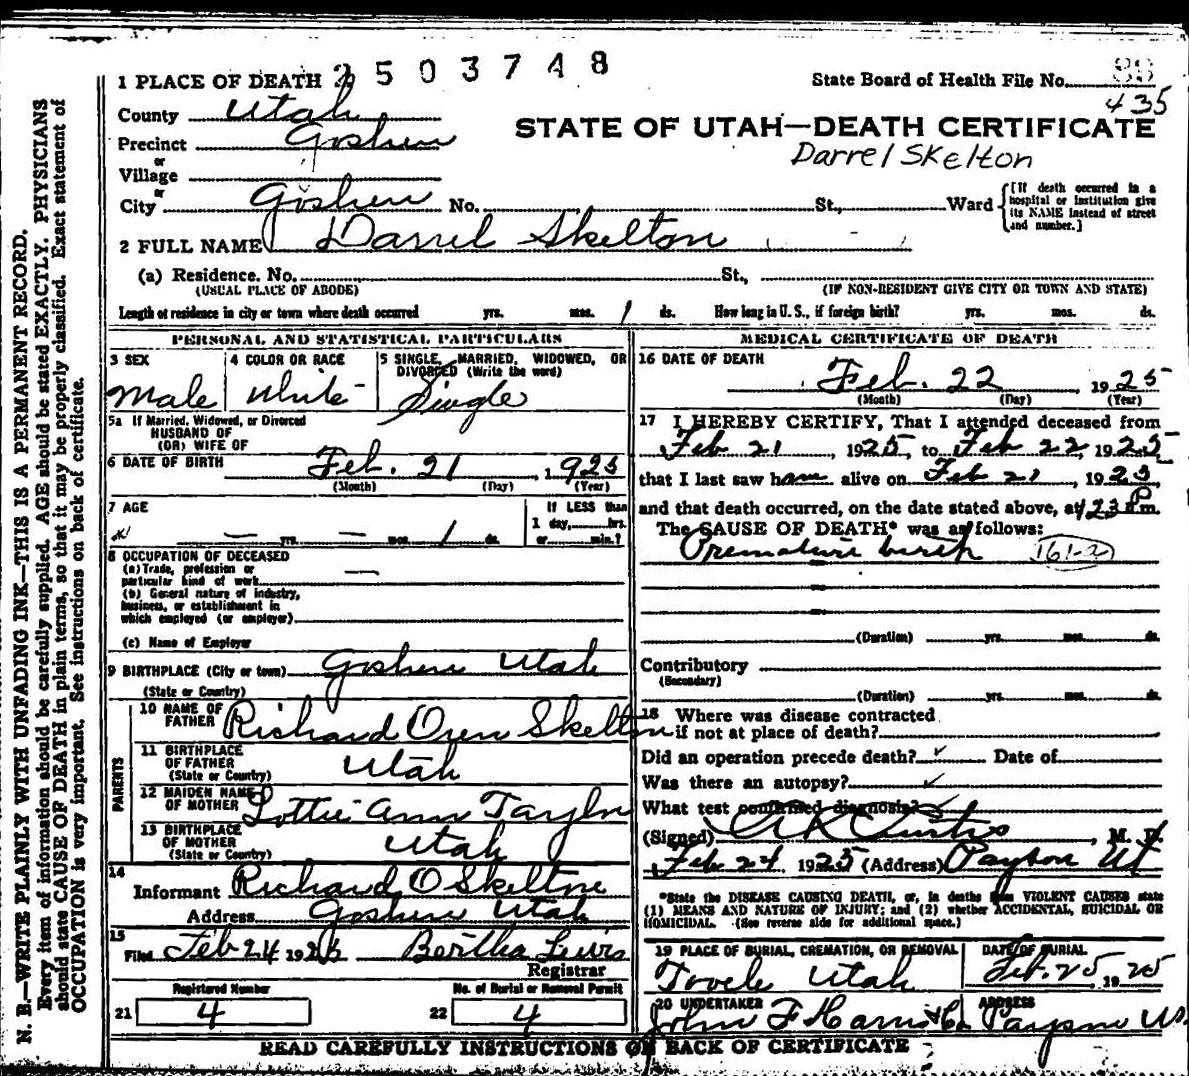 2503748
1 PLACE OF DEATH
State Board of Health File No. 88
435
County Utah
STATE OF UTAH—DEATH CERTIFICATE
Precinct Goshen
Darrel Skelton
or
Village
or
City Goshen No. St., Ward
[If death occurred in a hospital or institution give its NAME instead of street and number.]
2 FULL NAME Darrel Skelton
(a) Residence. No. St.,
(USUAL PLACE OF ABODE) (IF NON-RESIDENT GIVE CITY OR TOWN AND STATE)
Length of residence in city or town where death occurred yrs. mos. 1 ds. How long in U. S., if foreign birth? yrs. mos. ds.
PERSONAL AND STATISTICAL PARTICULARS
3 SEX
Male
4 COLOR OR RACE
White
5 SINGLE, MARRIED, WIDOWED, OR
DIVORCED (Write the word)
Single
5a If Married, Widowed, or Divorced
HUSBAND OF
(OR) WIFE OF
6 DATE OF BIRTH Feb. 21, 1925
(Month) (Day) (Year)
7 AGE
— yrs. — mos. 1 ds.
If LESS than
1 day, hrs.
or min.?
8 OCCUPATION OF DECEASED
(a) Trade, profession or
particular kind of work —
(b) General nature of industry,
business, or establishment in
which employed (or employer)
(c) Name of Employer
9 BIRTHPLACE (City or town) Goshen Utah
(State or Country)
PARENTS
10 NAME OF
FATHER Richard Oren Skelton
11 BIRTHPLACE
OF FATHER Utah
(State or Country)
12 MAIDEN NAME
OF MOTHER Lottie Ann Taylor
13 BIRTHPLACE
OF MOTHER Utah
(State or Country)
14
Informant Richard O Skelton
Address Goshen Utah
15
Filed Feb 24 192 Bertha Lewis
Registrar
Registered Number
21 4
No. of Burial or Removal Permit
22 4
MEDICAL CERTIFICATE OF DEATH
16 DATE OF DEATH
Feb. 22, 1925
(Month) (Day) (Year)
17 I HEREBY CERTIFY, That I attended deceased from
Feb 21, 1925, to Feb 22, 1925
that I last saw him alive on Feb 21, 1925,
and that death occurred, on the date stated above, at P m.
The CAUSE OF DEATH* was as follows:
Premature birth 161-2
(Duration) yrs. mos. ds.
Contributory
(Secondary)
(Duration) yrs. mos. ds.
18 Where was disease contracted
if not at place of death?
Did an operation precede death? ✓ Date of
Was there an autopsy? ✓
What test confirmed diagnosis?
(Signed) A K Curtis, M. D.
Feb 24 1925 (Address) Payson Ut
*State the DISEASE CAUSING DEATH, or, in deaths from VIOLENT CAUSES state
(1) MEANS AND NATURE OF INJURY; and (2) whether ACCIDENTAL, SUICIDAL OR
HOMICIDAL. (See reverse side for additional space.)
19 PLACE OF BURIAL, CREMATION, OR REMOVAL
Tooele Utah
DATE OF BURIAL
Feb. 25 1925
20 UNDERTAKER
John F Harris & Co
ADDRESS
Payson Ut.
READ CAREFULLY INSTRUCTIONS ON BACK OF CERTIFICATE
N. B.—WRITE PLAINLY WITH UNFADING INK—THIS IS A PERMANENT RECORD.
Every item of information should be carefully supplied. AGE should be stated EXACTLY. PHYSICIANS
should state CAUSE OF DEATH in plain terms, so that it may be properly classified. Exact statement of
OCCUPATION is very important. See instructions on back of certificate.